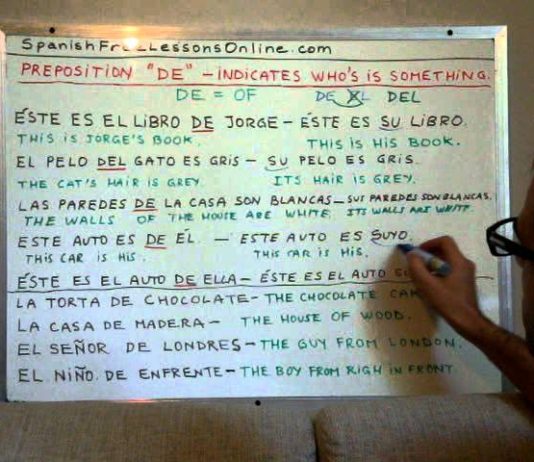 SpanishFreeLessonsOnline.com
PREPOSITION "DE" - INDICATES WHO'S IS SOMETHING.
DE = OF DE XL DEL
ÉSTE ES EL LIBRO DE JORGE - ÉSTE ES SU LIBRO.
THIS IS JORGE'S BOOK. THIS IS HIS BOOK.
EL PELO DEL GATO ES GRIS - SU PELO ES GRIS.
THE CAT'S HAIR IS GREY. ITS HAIR IS GREY.
LAS PAREDES DE LA CASA SON BLANCAS - SUS PAREDES SON BLANCAS.
THE WALLS OF THE HOUSE ARE WHITE. ITS WALLS ARE WHITE.
ESTE AUTO ES DE ÉL. - ESTE AUTO ES SUYO.
THIS CAR IS HIS. THIS CAR IS HIS.
ÉSTE ES EL AUTO DE ELLA - ÉSTE ES EL AUTO
LA TORTA DE CHOCOLATE - THE CHOCOLATE
LA CASA DE MADERA - THE HOUSE OF WOOD.
EL SEÑOR DE LONDRES - THE GUY FROM LONDON.
EL NIÑO DE ENFRENTE - THE BOY FROM RIGH IN FRONT